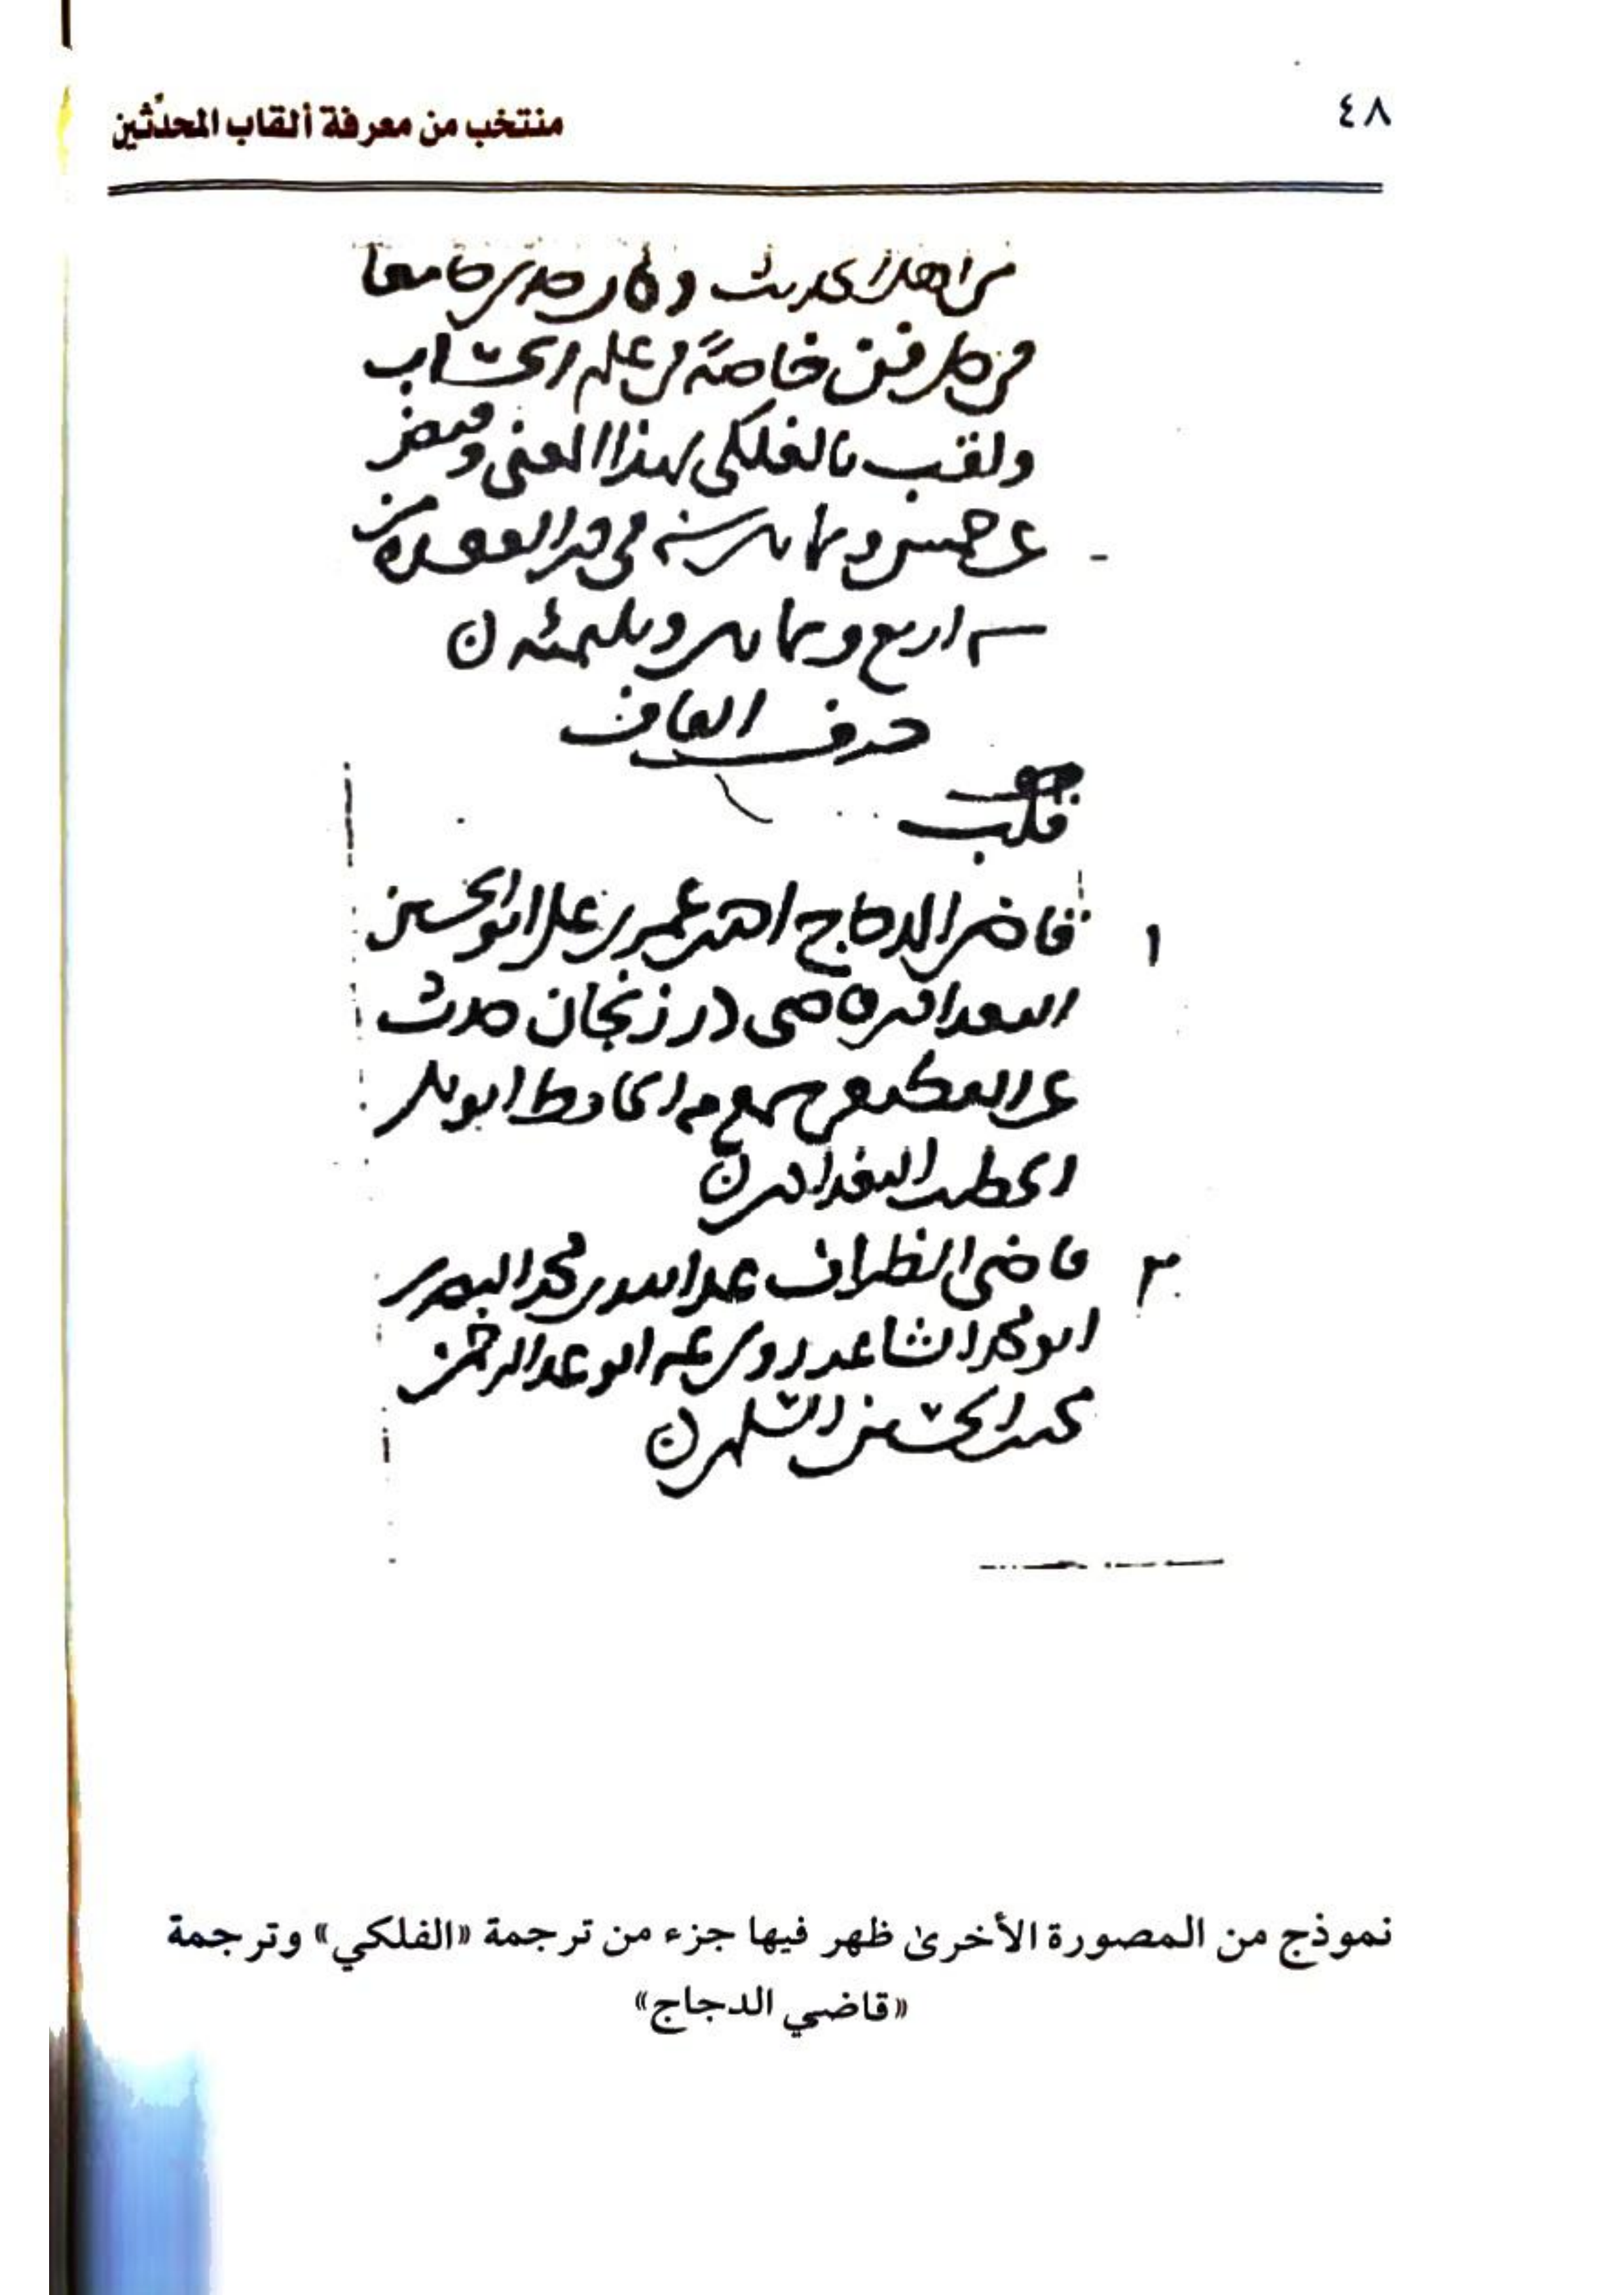 ٤٨
منتخب من معرفة ألقاب المحدّثين
من اهل الحديث وكان جدي جامعا
في كل فن خاصةً في علم الحساب
ولقب بالفلكي لهذا المعنى وقبض
عن خمس وثمانين سنة في ذي القعدة من
سنة اربع وثمانين وثلثمئة ن
حرف القاف
قلت
١ قاضي الدجاج احمد عمر بن علي ابو الحسين
البغدادي قاضي درزنجان حدث
عن سمع منه الحافظ ابو بكر
الخطيب البغدادي ن
٢ قاضي الظراف عبد الله بن محمد
ابو محمد الشاعر روى عنه ابو عبد الرحمن
محمد الحسين السلمي ن
نموذج من المصورة الأخرىٰ ظهر فيها جزء من ترجمة «الفلكي» وترجمة
«قاضي الدجاج»